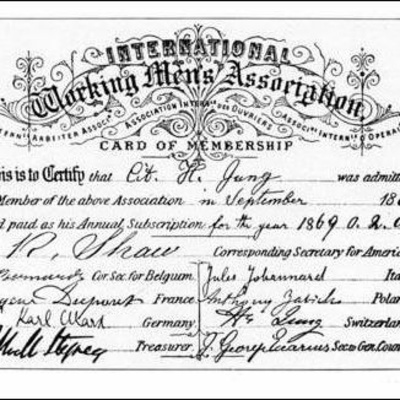 INTERNATIONAL
Working Men's Association
ASSOCIATION INTERN<sup>LE</sup> DES OUVRIERS
ARBEITER ASSOC
ASSOC INTERN D'OPERA
CARD OF MEMBERSHIP
is is to Certify that Cit. H. Jung was admitt
Member of the above Association in September 18
d paid as his Annual Subscription for the year 1869 0.2.
R. Shaw Corresponding Secretary for Americ
Bernard Cor. Sec. for Belgium. Jules Johannard Ita
Eugene Dupont France. Anthony Zabicki Polan
Karl Marx Germany. H. Jung Switzerlan
Treasurer. J. George Eccarius Sec. to Gen. Coun